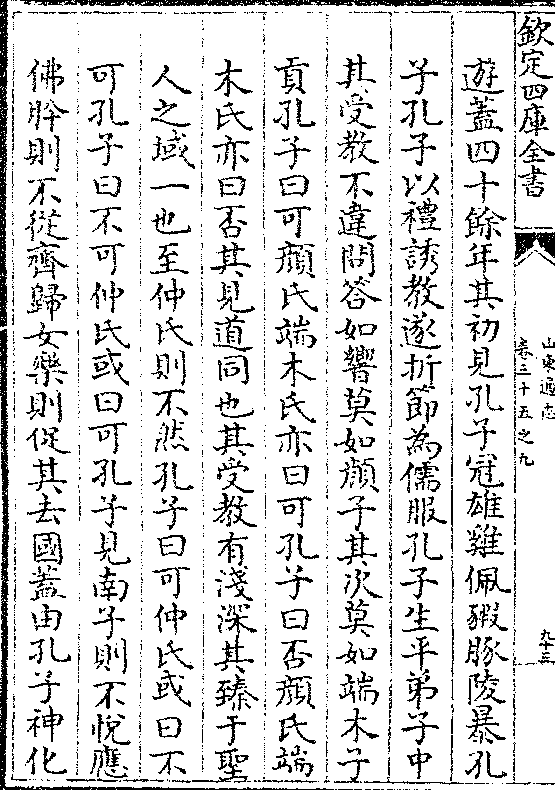 欽定四庫全書
山東通志
卷三十五之九
九十三
遊蓋四十餘年其初見孔子冠雄雞佩豭豚陵暴孔
子孔子以禮誘教遂折節為儒服孔子生平弟子中
其受教不違問答如響莫如顔子其次莫如端木子
貢孔子曰可顔氏端木氏亦曰可孔子曰否顔氏端
木氏亦曰否其見道同也其受教有淺深其臻于聖
人之域一也至仲氏則不然孔子曰可仲氏或曰不
可孔子曰不可仲氏或曰可孔子見南子則不悅應
佛肸則不從齊歸女樂則促其去國蓋由孔子神化